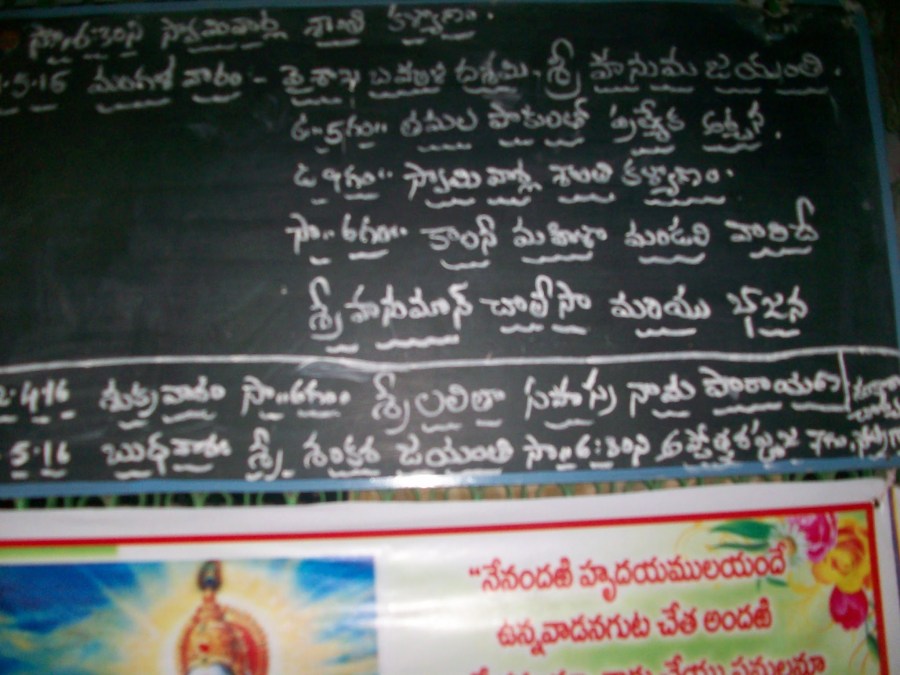 సా॥ 6:30ని స్వామివార్ల శాంతి కళ్యాణం.
·5·16 మంగళ వారం :- వైశాఖ బహుళ దశమి - శ్రీ హనుమ జయంతి.
ఉ॥ 5గం॥ తమల పాకులతో ప్రత్యేక అర్చన.
ఉ 9గం॥ స్వామి వార్ల శాంతి కళ్యాణం.
సా॥ 6గం॥ మహిళా మండలి వారిచే
శ్రీ హనుమాన్ చాలీసా మరియు భజన
·4·16 శుక్రవారం సా॥ 6గం॥ శ్రీ లలితా సహస్ర నామ పారాయణ
·5·16 బుధవారం శ్రీ శంకర జయంతి సా॥ 6:30ని
"నేనందఱి హృదయములయందే
ఉన్నవాడనగుట చేత అందఱి